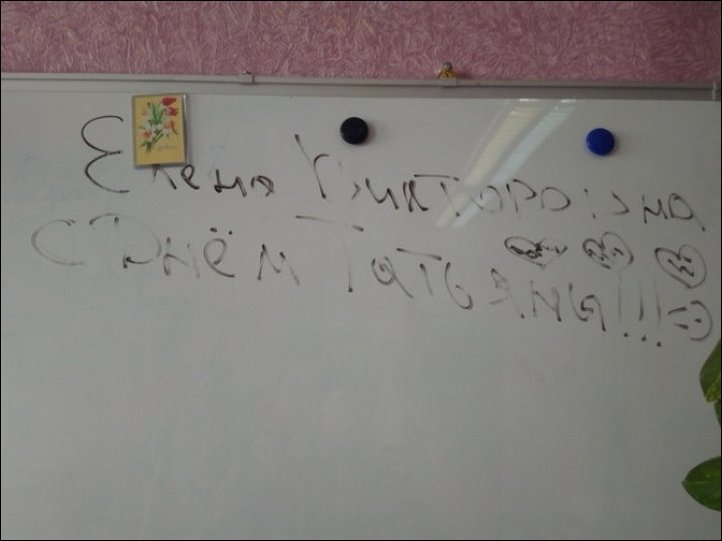 Елена Викторовна
С Днём Татьяны!!! :)